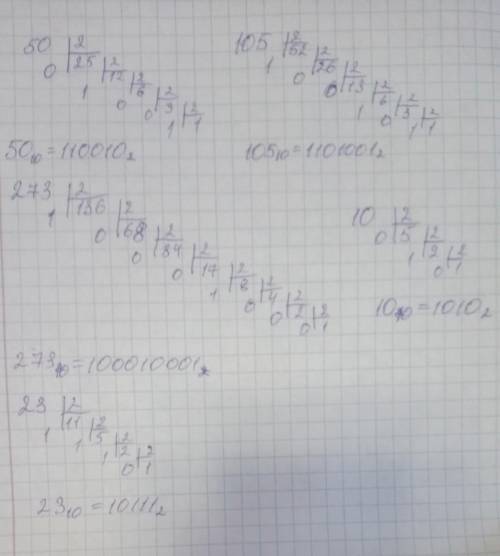 50 | 2
0 | 25 | 2
1 | 12 | 2
0 | 6 | 2
0 | 3 | 2
1 | 1
50₁₀ = 110010₂
105 | 2
1 | 52 | 2
0 | 26 | 2
0 | 13 | 2
1 | 6 | 2
0 | 3 | 2
1 | 1
105₁₀ = 1101001₂
273 | 2
1 | 136 | 2
0 | 68 | 2
0 | 34 | 2
0 | 17 | 2
1 | 8 | 2
0 | 4 | 2
0 | 2 | 2
0 | 1
273₁₀ = 100010001₂
10 | 2
0 | 5 | 2
1 | 2 | 2
0 | 1
10₁₀ = 1010₂
23 | 2
1 | 11 | 2
1 | 5 | 2
1 | 2 | 2
0 | 1
23₁₀ = 10111₂